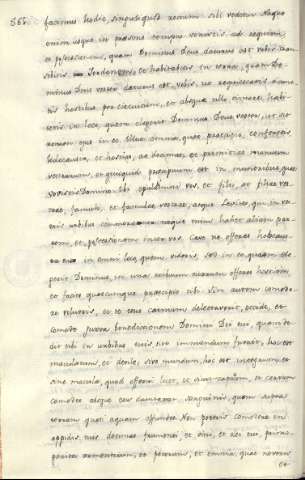 facimus hodie, singuli quod rectum sibi videtur Neque
enim usque in præsens tempus venistis ad requiem,
et possessionem, quam Dominus Deus daturus est vobis tran
sibitis Jordanem et habitabitis in terra, quam Do
minus Deus vester daturus est vobis, ut requiescatis a cunc
tis hostibus per circuitum, et absque ullo timore habi
tetis in loco, quem elegerit Dominus Deus vester, ut sit
nomen ejus in eo Illuc omnia, quæ præcipio, conferetis
holocausta, et hostias, ac decimas, et primitias manuum
vestrarum, et quidquid præcipuum est in muneribus, quæ
vovistis Domino Ibi epulabimini vos, et filii, ac filiæ ves
træ, famuli, et famulæ vestræ, atque Levites, qui in ves
tris urbibus commoratur neque enim habet aliam par
tem, et possessionem inter vos Cave ne offeras holocaus
ta tua in omni loco, quem videris, sed in eo, quem ele
gerit Dominus, in una tribuum tuarum offeres hostias,
et facies quæcumque præcipio tibi Sin autem comede
re volueris, et te esus carnium delectaverit, occide, et
comede juxta benedictionem Domini Dei tui, quam de
dit tibi in urbibus tuis sive immundum fuerit, hoc est
maculatum, et debile, sive mundum, hoc est integrum, et
sine macula, quod offerri licet, et
comedes absque esu sanguinis, quem supra
terram quasi aquam effundes Non poteris comedere in
oppidis tuis decimas frumenti, et vini, et olei tui, primo
genita armentorum, et pecorum, et omnia, quæ voveris